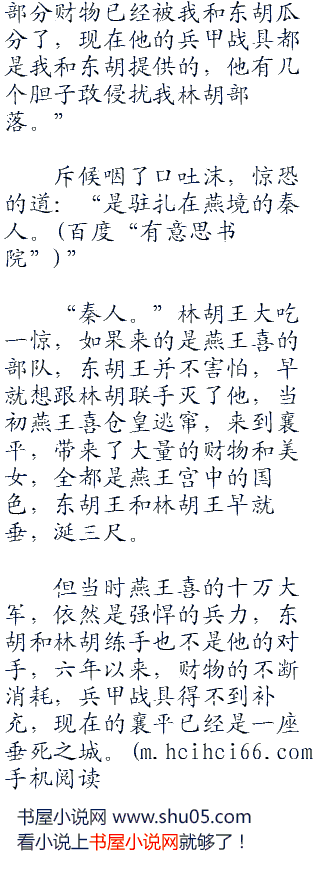 部分财物已经被我和东胡瓜
分了，现在他的兵甲战具都
是我和东胡提供的，他有几
个胆子敢侵扰我林胡部
落。”
斥候咽了口吐沫，惊恐
的道：“是驻扎在燕境的秦
人。(百度“有意思书
院”)”
“秦人。”林胡王大吃
一惊，如果来的是燕王喜的
部队，东胡王并不害怕，早
就想跟林胡联手灭了他，当
初燕王喜仓皇逃窜，来到襄
平，带来了大量的财物和美
女，全都是燕王宫中的国
色，东胡王和林胡王早就
垂，涎三尺。
但当时燕王喜的十万大
军，依然是强悍的兵力，东
胡和林胡练手也不是他的对
手，六年以来，财物的不断
消耗，兵甲战具得不到补
充，现在的襄平已经是一座
垂死之城。(m.hcihci66.com
手机阅读
书屋小说网 www.shu05.com
看小说上书屋小说网就够了！